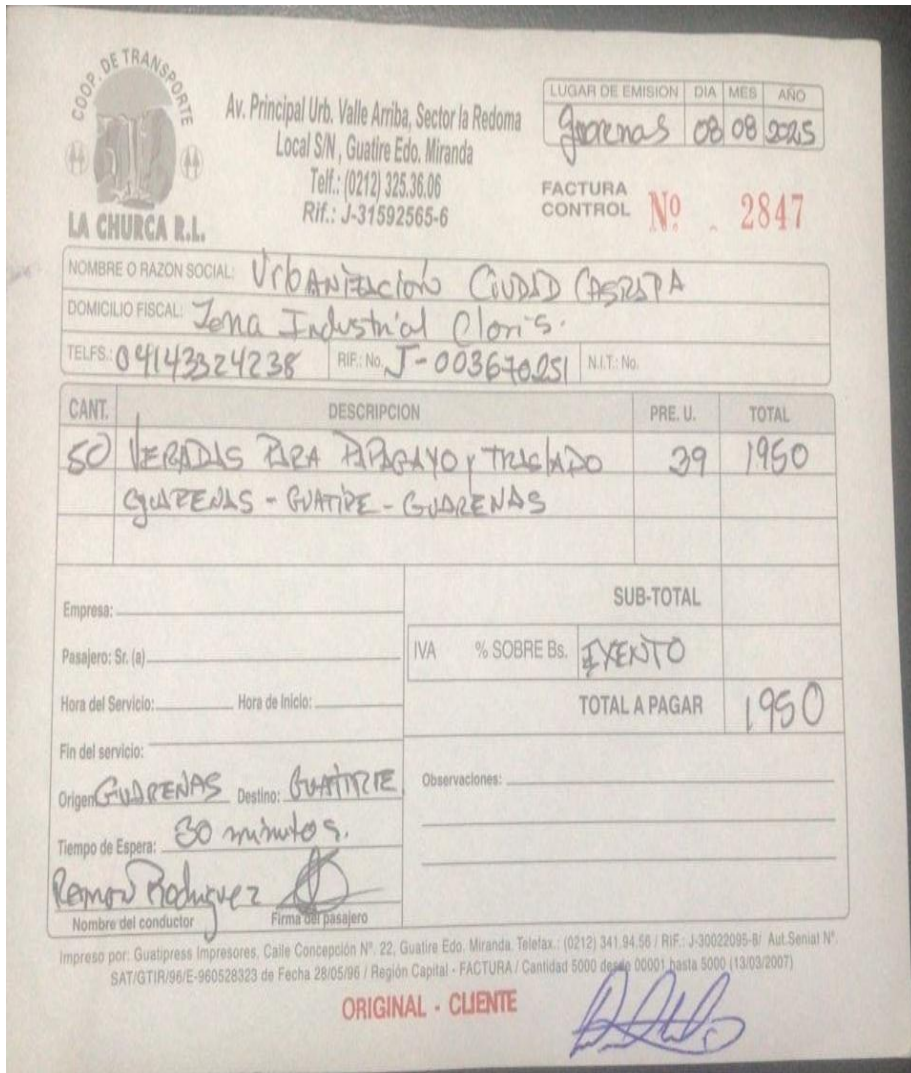 COOP. DE TRANSPORTE
LA CHURCA R.L.
Av. Principal Urb. Valle Arriba, Sector la Redoma
Local S/N, Guatire Edo. Miranda
Telf.: (0212) 325.36.06
Rif.: J-31592565-6
LUGAR DE EMISION DIA MES AÑO
Guarenas 08 08 2025
FACTURA
CONTROL Nº 2847
NOMBRE O RAZON SOCIAL: Urbanización CIUDAD CASARAPA
DOMICILIO FISCAL: Zona Industrial Cloris.
TELFS.: 04143324238 RIF.: No. J-003670251 N.I.T.: No.
CANT. DESCRIPCION PRE. U. TOTAL
50 VERADAS PARA PAPAGAYO y TRASLADO 39 1950
GUARENAS - GUATIRE - GUARENAS
Empresa:
SUB-TOTAL
Pasajero: Sr. (a)
IVA % SOBRE Bs. EXENTO
Hora del Servicio: Hora de Inicio:
TOTAL A PAGAR 1950
Fin del servicio:
Origen: GUARENAS Destino: GUATIRE
Observaciones:
Tiempo de Espera: 30 minutos.
Ramon Rodriguez
Nombre del conductor Firma del pasajero
Impreso por: Guatipress Impresores, Calle Concepción Nº. 22, Guatire Edo. Miranda. Telefax.: (0212) 341.94.56 / RIF.: J-30022095-8/ Aut.Senial Nº.
SAT/GTIR/96/E-960528323 de Fecha 28/05/96 / Región Capital - FACTURA / Cantidad 5000 desde 00001 hasta 5000 (13/03/2007)
ORIGINAL - CLIENTE